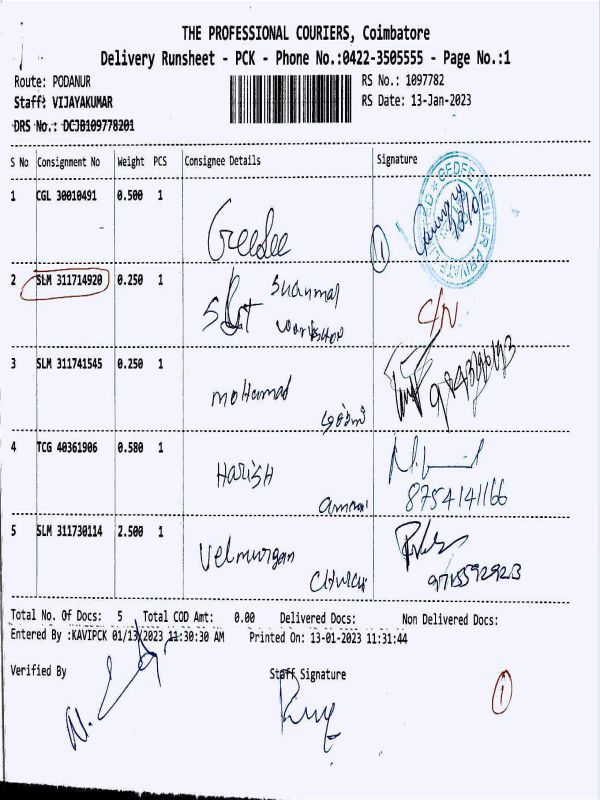 THE PROFESSIONAL COURIERS, Coimbatore
Delivery Runsheet - PCK - Phone No.:0422-3505555 - Page No.:1
Route: PODANUR
RS No.: 1097782
Staff: VIJAYAKUMAR
RS Date: 13-Jan-2023
DRS No.: DCJB109778201
S No Consignment No Weight PCS Consignee Details Signature
1 CGL 30010491 0.500 1
2 SLM 311714920 0.250 1
C/N
3 SLM 311741545 0.250 1
Mohamad
4 TCG 40361906 0.580 1
Harish
8754141166
5 SLM 311730114 2.500 1
Velmurgan
Church
Total No. Of Docs: 5 Total COD Amt: 0.00 Delivered Docs: Non Delivered Docs:
Entered By :KAVIPCK 01/13/2023 11:30:30 AM Printed On: 13-01-2023 11:31:44
Verified By Staff Signature
1